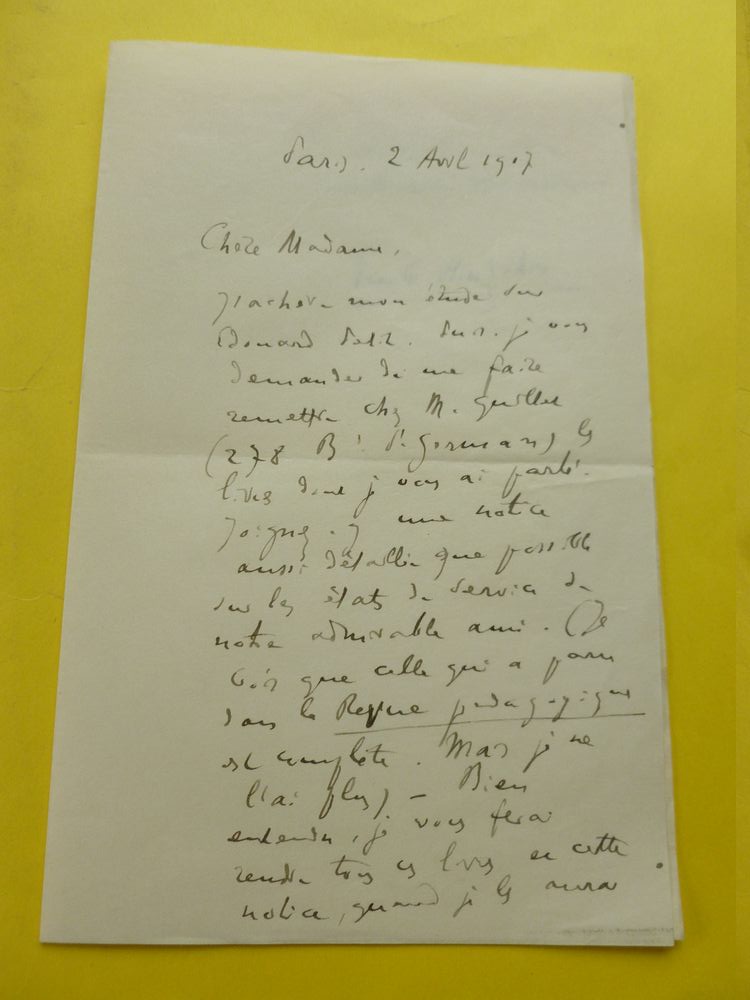 Paris. 2 Avril 1917
Chère Madame,
J'achève mon étude sur
Edouard Petit. Puis-je vous
demander de me faire
remettre chez M. Quillet
(278 Bd St Germain) les
livres dont je vous ai parlé.
Joignez-y une notice
aussi détaillée que possible
sur les états de service de
notre admirable ami. (Je
crois que celle qui a paru
dans la Revue pédagogique
est complète. Mais je ne
l'ai plus) — Bien
entendu, je vous ferai
rendre tous ces livres et cette
notice, quand je les aurai